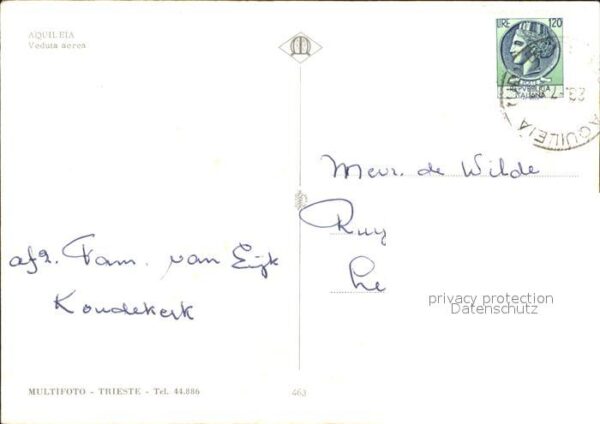 AQUILEIA
Veduta aerea
LIRE 120
REPVBBLICA
ITALIANA
AQUILEIA
Mevr. de Wilde
afz. Fam. van Eijk
Koudekerk
privacy protection
Datenschutz
MULTIFOTO - TRIESTE - Tel. 44.886
463